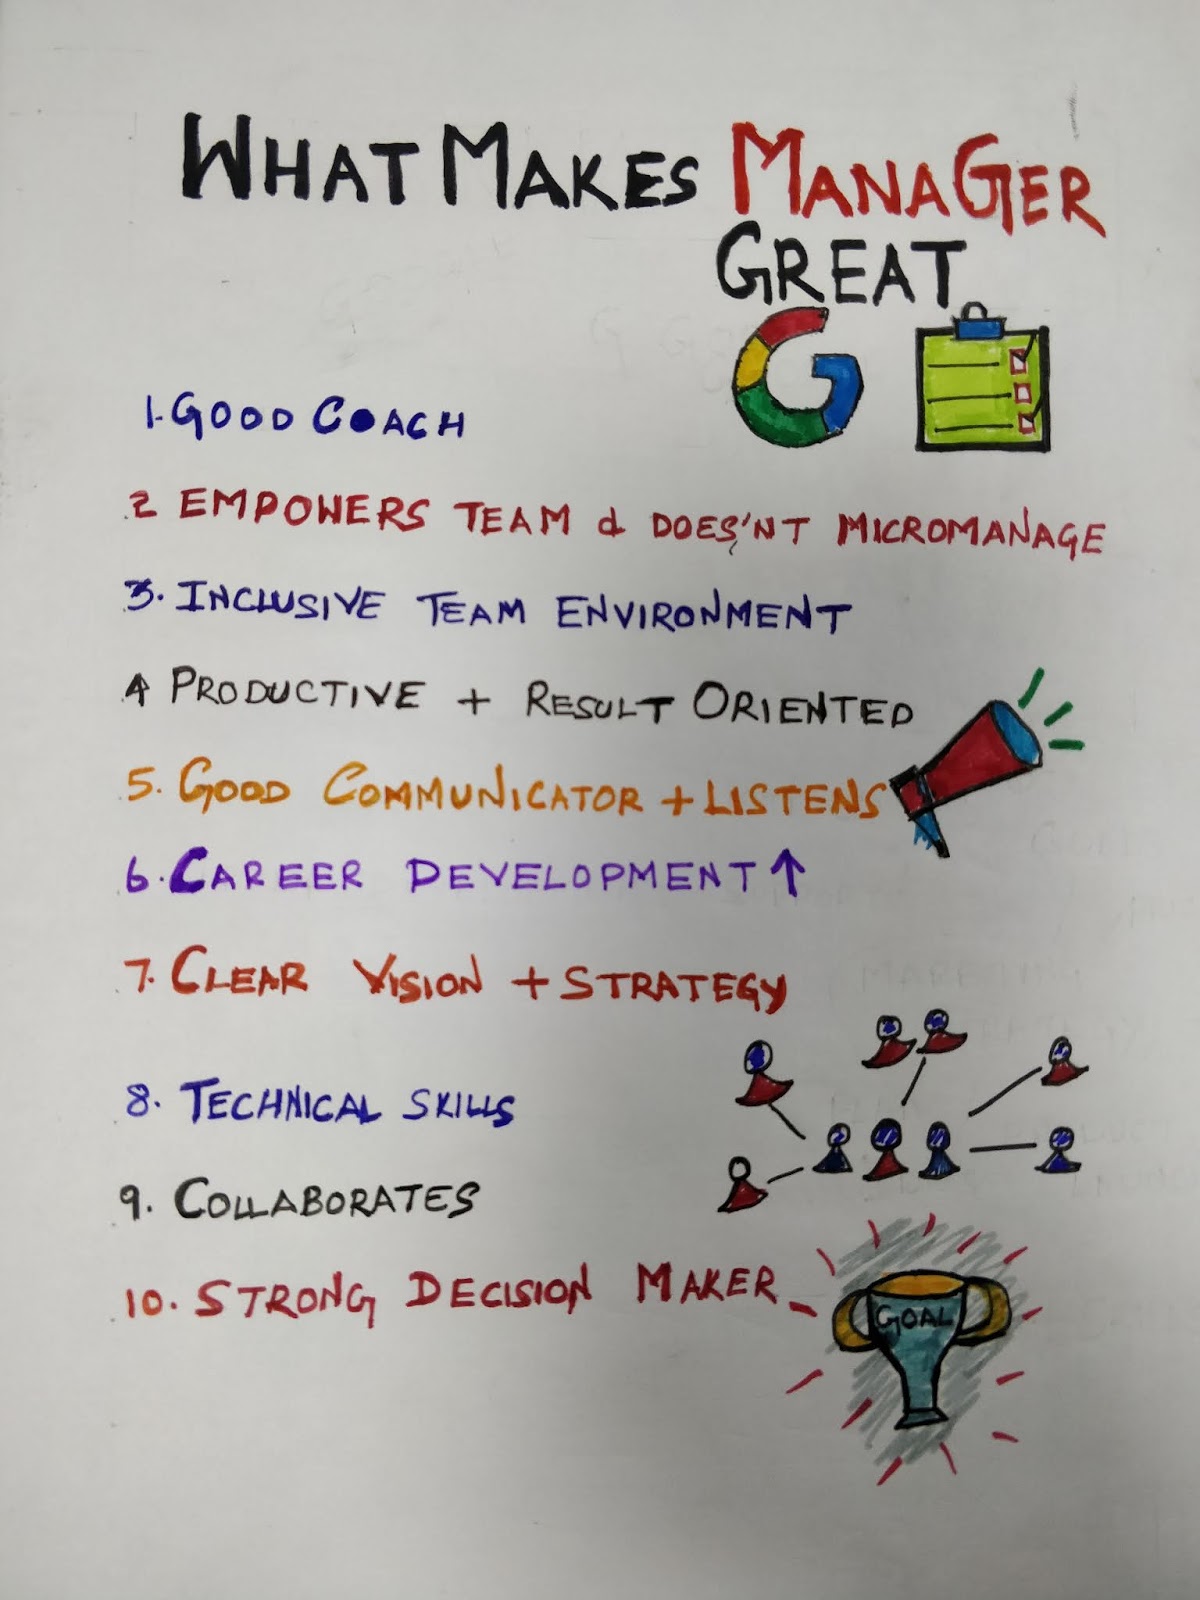 WHAT MAKES MANAGER
GREAT
1. GOOD COACH
2 EMPOWERS TEAM & DOES'NT MICROMANAGE
3. INCLUSIVE TEAM ENVIRONMENT
4 PRODUCTIVE + RESULT ORIENTED
5. GOOD COMMUNICATOR + LISTENS
6. CAREER DEVELOPMENT ↑
7. CLEAR VISION + STRATEGY
8. TECHNICAL SKILLS
9. COLLABORATES
10. STRONG DECISION MAKER
GOAL